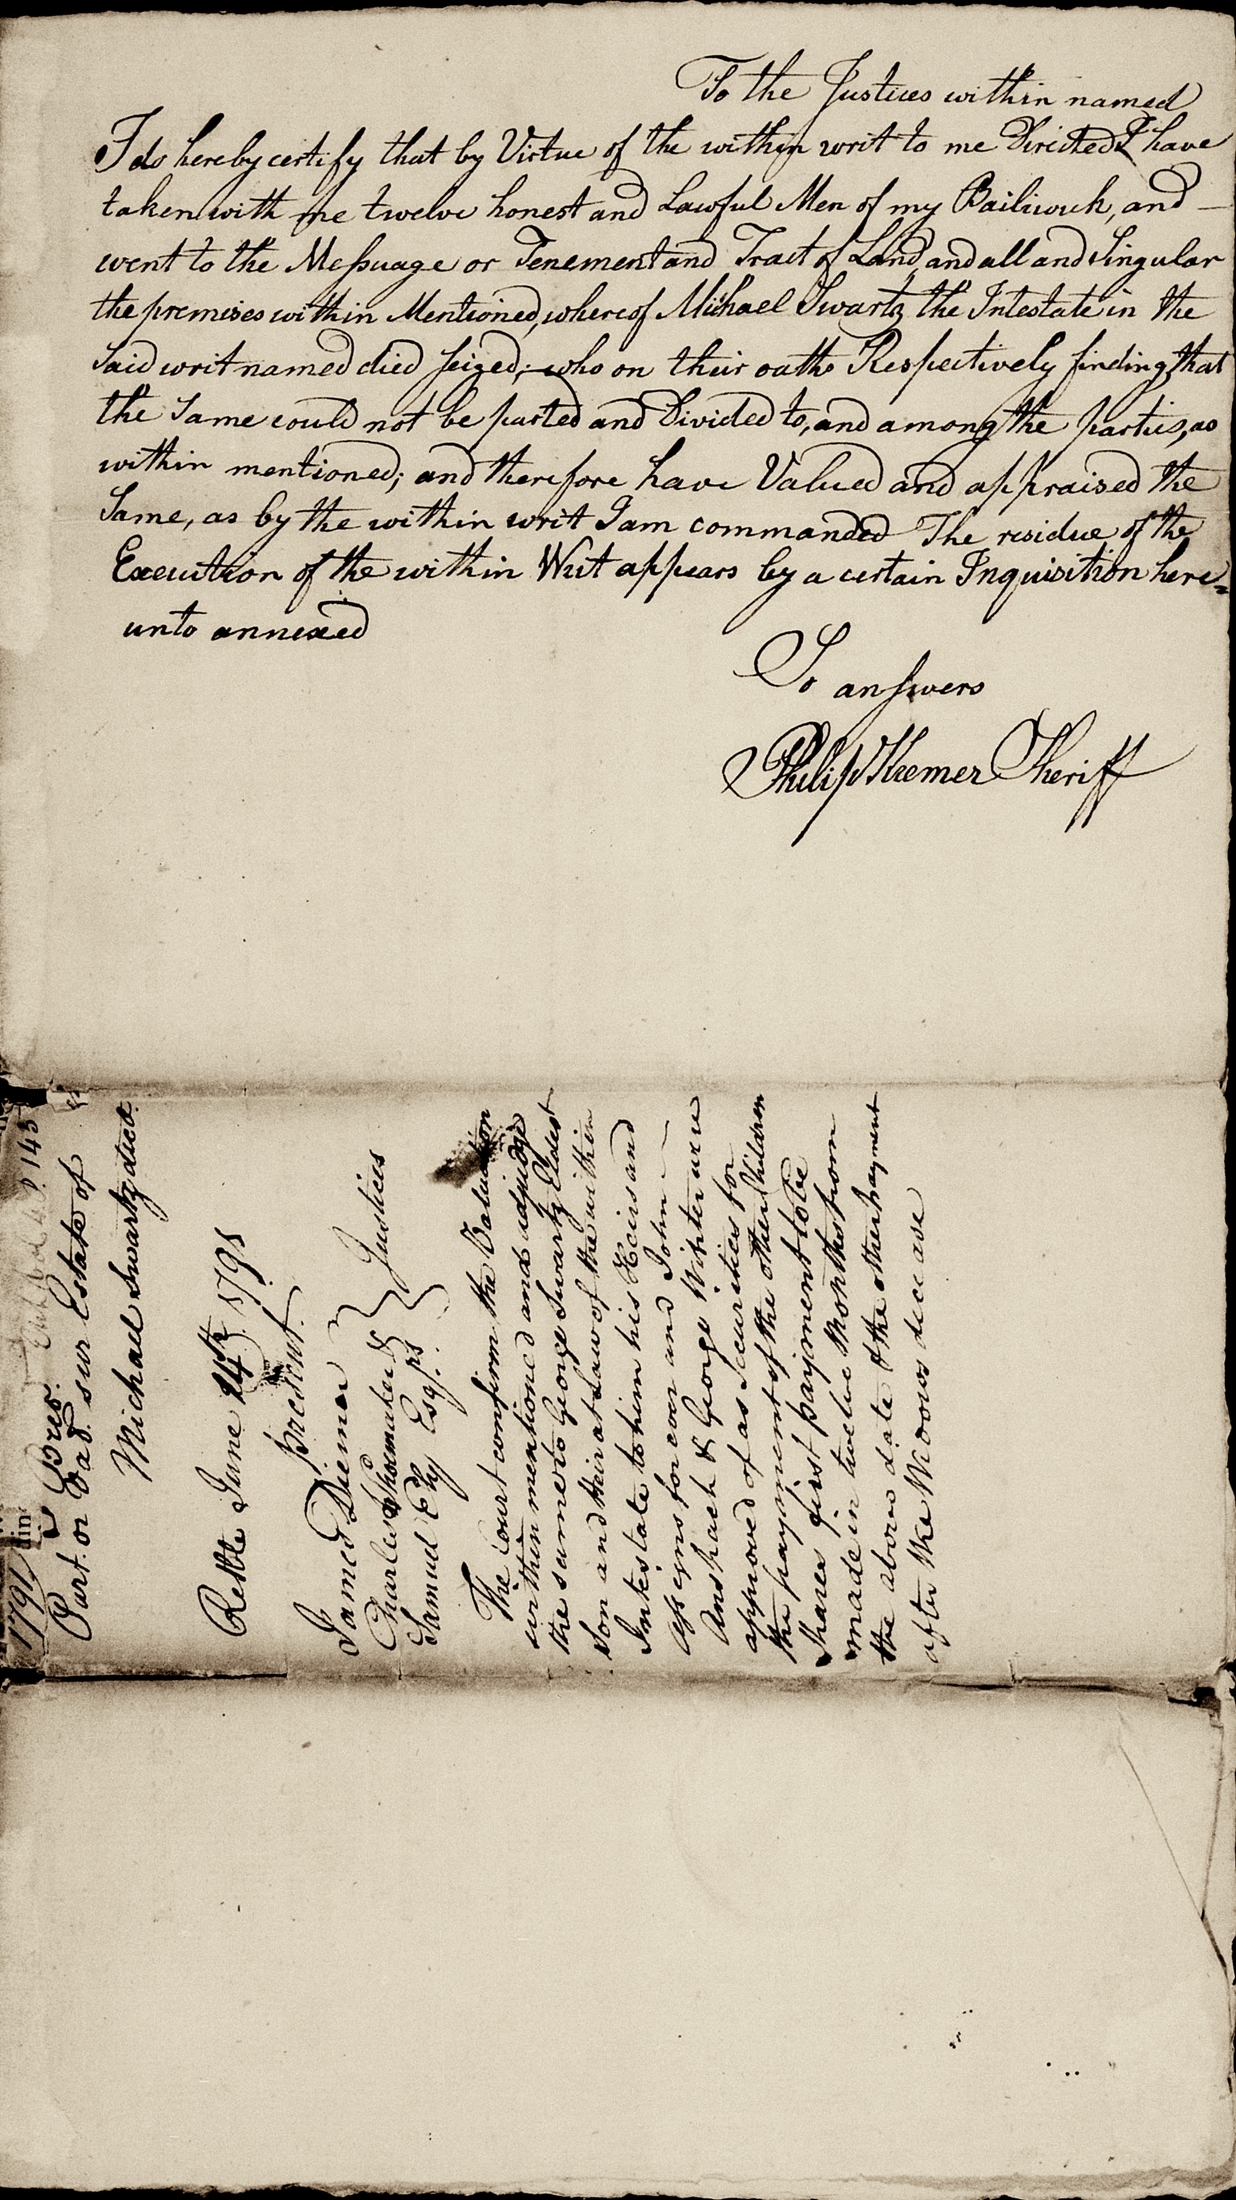 To the Justices within named
I do hereby certify that by Virtue of the within writ to me Directed I have
taken with me twelve honest and Lawful Men of my Bailiwick, and
went to the Messuage or Tenement and Tract of Land, and all and Singular
the premises within Mentioned, whereof Michael Swartz the Intestate in the
Said writ named died seized; who on their oaths Respectively finding that
the Same could not be parted and Divided to, and among the parties, as
within mentioned; and therefore have Valued and appraised the
Same, as by the within writ I am commanded The residue of the
Execution of the within Writ appears by a certain Inquisition here=
unto annexed
So answers
Philip Kremer Sheriff
1791
P. 145
Part. or Val. sur Estate of
Michael Swartz decd.
Retble June 24th 1791
Present.
James Diemer
Charles Shoemaker &
Samuel Ely Esqrs. Justices
The Court confirm the Valuation
within mentioned and adjudge
the same to George Swartz Eldest
Son and heir at Law of the within
Intestate to him his Heirs and
assigns for ever and John
Anspach & George Winter are
approved of as Securities for
the payment of the other Children
Shares first payment to be
made in twelve Months from
the above date & the other payment
after the Widows decease